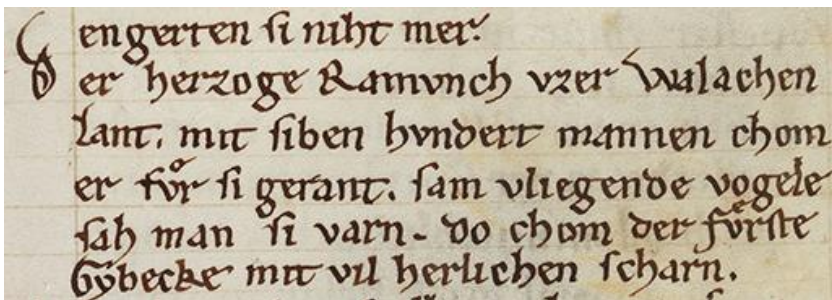 en gerten ſi niht mer.
Der herzoge Ramvnch vzer Walachen
lant. mit ſiben hvndert mannen chom
er fvͦr ſi gerant. ſam vliegende vogele
ſah man ſi varn. do chom der fvͤrſte
Gybecke mit vil herlichen ſcharn.